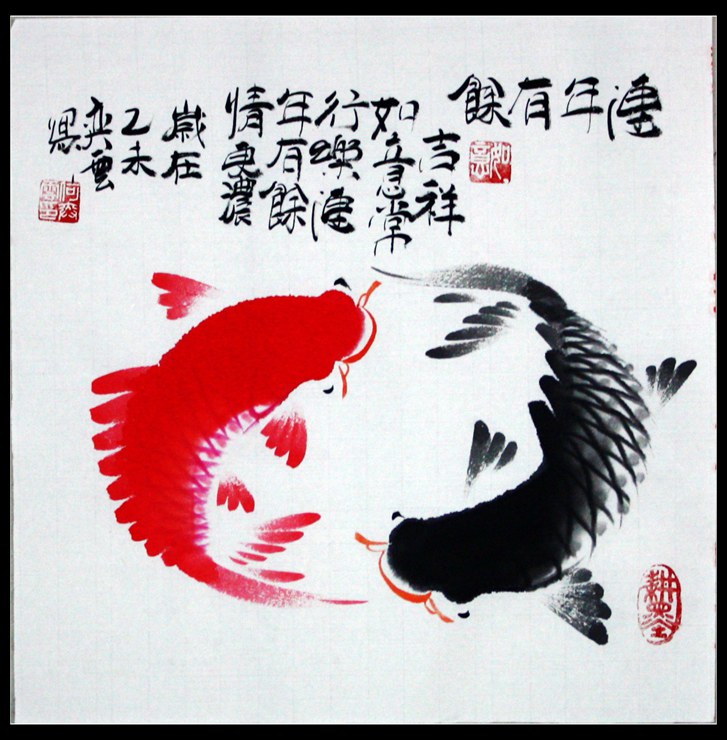 漣年有餘
如意
吉祥
如意常
行樂漣
年有餘
情更濃
歲在
乙未
奕雲